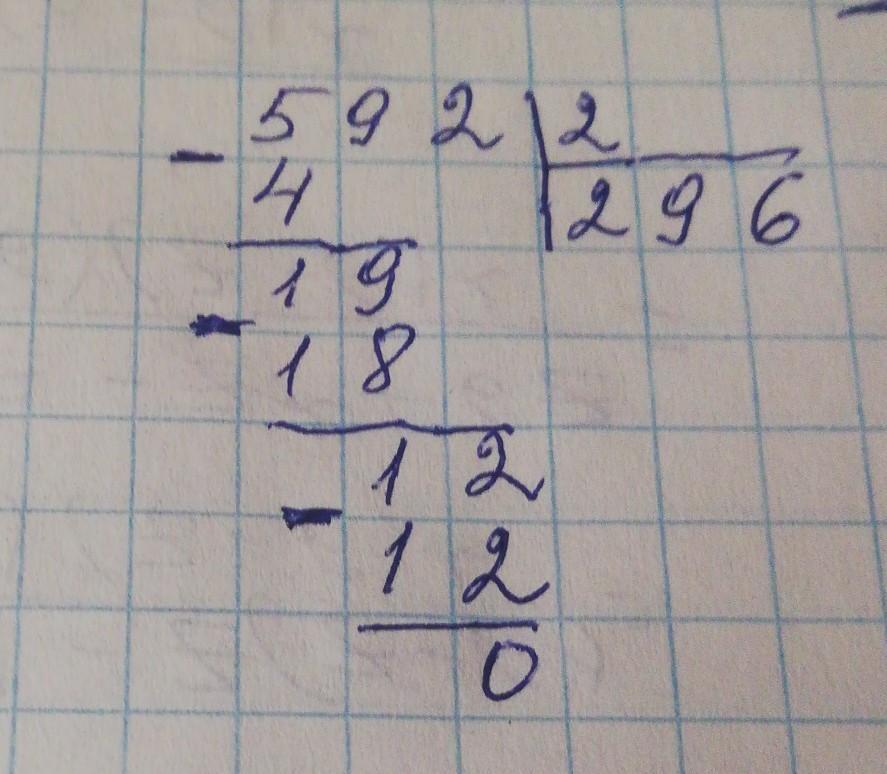 592 2
- 4 296
19
- 18
12
- 12
0